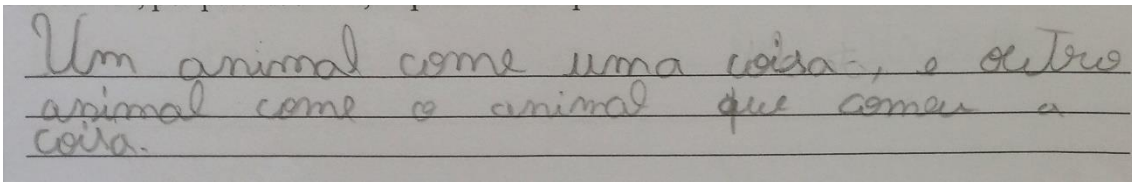 Um animal come uma coisa, e outro
animal come o animal que comeu a
coisa.